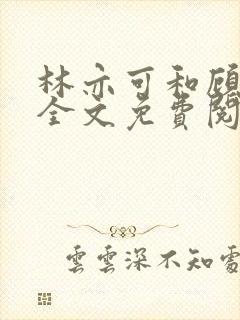 林亦可和顾
全文免费阅
云云深不知处